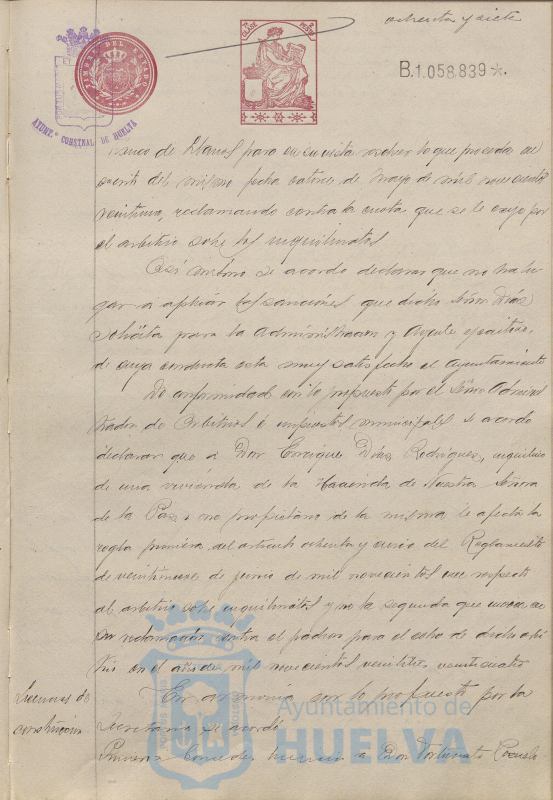 ochenta y siete
TIMBRE DEL ESTADO
B.1.058.839*.
AYUNT.º CONSTNAL DE HUELVA
de Llanos para en su vista resolver lo que proceda el
escrito del mismo fecha catorce de Mayo de mil novecientos
veintiuno, reclamando contra la cuota que se le exije por
el arbitrio sobre los inquilinatos
Así mismo se acordó declarar que no ha lu
gar a aplicar las sanciones que dicho Señor Díaz
solicita para la Administracion y Agente ejecutivo,
de cuya conducta esta muy satisfecho el Ayuntamiento
De conformidad con lo propuesto por el Señor Adminis
trador de Arbitrios é impuestos municipales se acordó
declarar que a Don Enrique Díaz Rodriguez, inquilino
de una vivienda de la Hacienda de Nuestra Señora
de la Paz y no propietario de la misma le afecta la
regla primera del articulo ochenta y cinco del Reglamento
de veintinueve de junio de mil novecientos once respecto
al arbitrio sobre inquilinatos y no la segunda que invoca en
su reclamación contra el padrón para el cobro de dicho arbi
trio en el año de mil novecientos veintitres veinticuatro
Licencias de
construcción
En armonia con lo propuesto por la
Secretaria se acordó
Primero: Conceder licencia a Don Fortunato
Ayuntamiento de
HUELVA